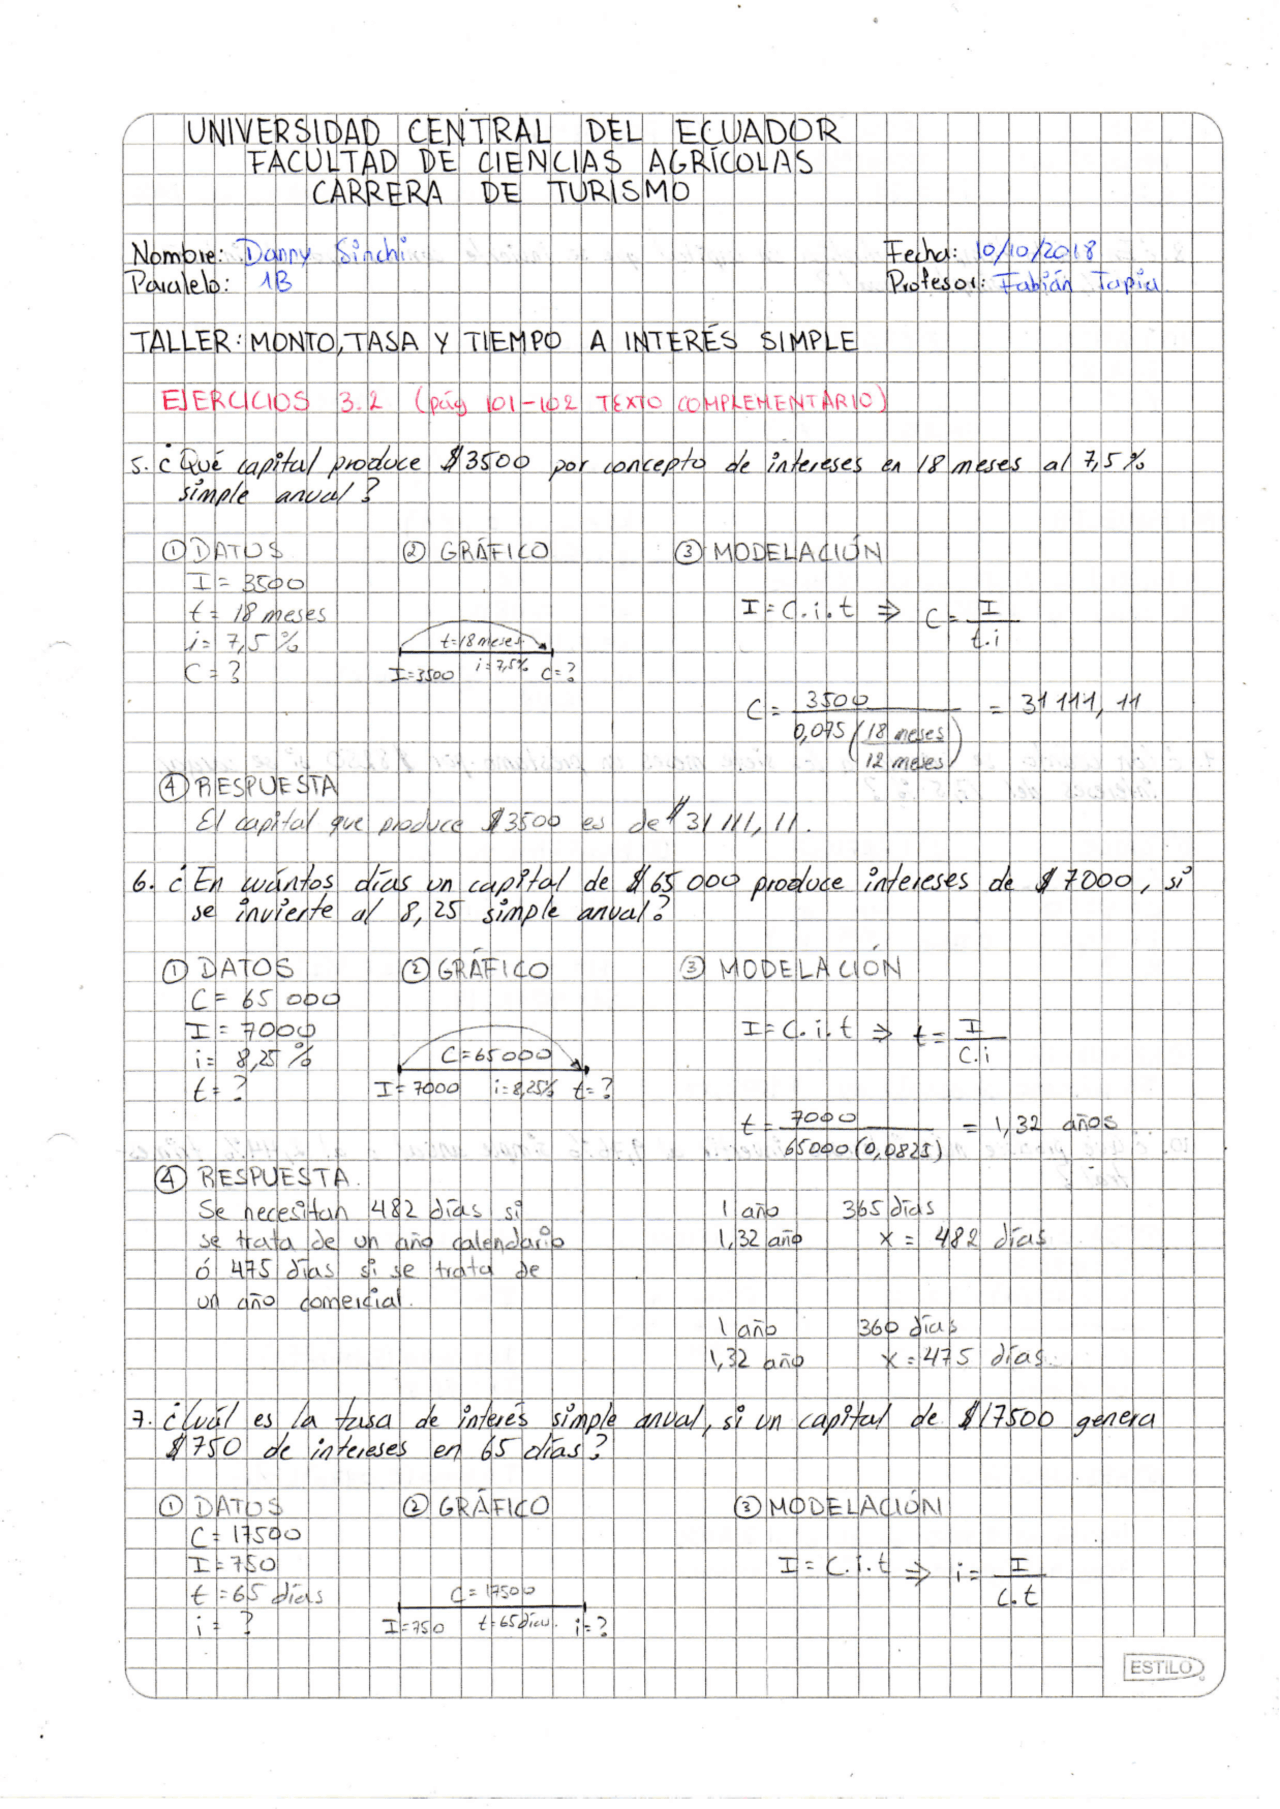 UNIVERSIDAD CENTRAL DEL ECUADOR
FACULTAD DE CIENCIAS AGRÍCOLAS
CARRERA DE TURISMO
Nombre: Danny Sinchi
Fecha: 10/10/2018
Paralelo: 1B
Profesor: Fabián Tapia
TALLER: MONTO, TASA Y TIEMPO A INTERÉS SIMPLE
EJERCICIOS 3.2 (pág 101-102 TEXTO COMPLEMENTARIO)
5. ¿Qué capital produce $3500 por concepto de intereses en 18 meses al 7,5%
simple anual?
① DATOS
I = 3500
t = 18 meses
i = 7,5%
C = ?
② GRÁFICO
t=18 meses
I=3500 i=7,5% C=?
③ MODELACIÓN
I = C.i.t ⇒ C = I / t.i
C = 3500 / 0,075 (18 meses / 12 meses) = 31 111, 11
④ RESPUESTA
El capital que produce $3500 es de $31 111, 11.
6. ¿En cuántos días un capital de $65 000 produce intereses de $7000, si
se invierte al 8,25 simple anual?
① DATOS
C = 65 000
I = 7000
i = 8,25%
t = ?
② GRÁFICO
C=65000
I=7000 i=8,25% t=?
③ MODELACIÓN
I = C.i.t ⇒ t = I / C.i
t = 7000 / 65000 (0,0825) = 1,32 años
④ RESPUESTA.
Se necesitan 482 días si
se trata de un año calendario
ó 475 días si se trata de
un año comercial.
1 año 365 días
1,32 año x = 482 días
1 año 360 días
1,32 año x = 475 días.
7. ¿Cuál es la tasa de interés simple anual, si un capital de $17500 genera
$750 de intereses en 65 días?
① DATOS
C = 17500
I = 750
t = 65 días
i = ?
② GRÁFICO
C = 17500
I=750 t=65 días. i=?
③ MODELACIÓN
I = C.i.t ⇒ i = I / C.t
ESTILO